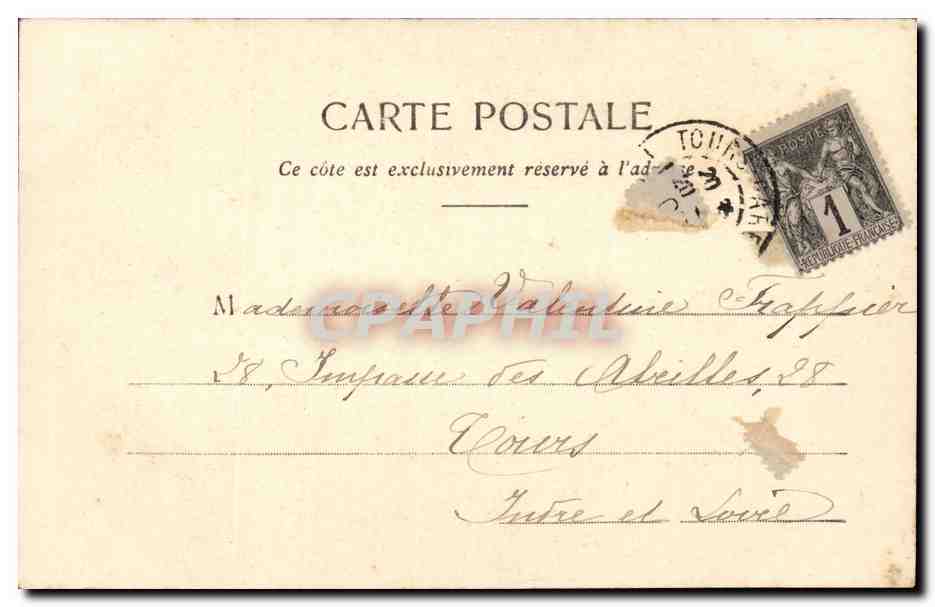 CARTE POSTALE
Ce côte est exclusivement réservé à l'adresse
TOURS GARE
POSTE
1
REPUBLIQUE FRANÇAISE
Mademoiselle Valentine Frappier
28, Impasse des Abeilles, 28
Tours
Indre et Loire
CPAPHIL